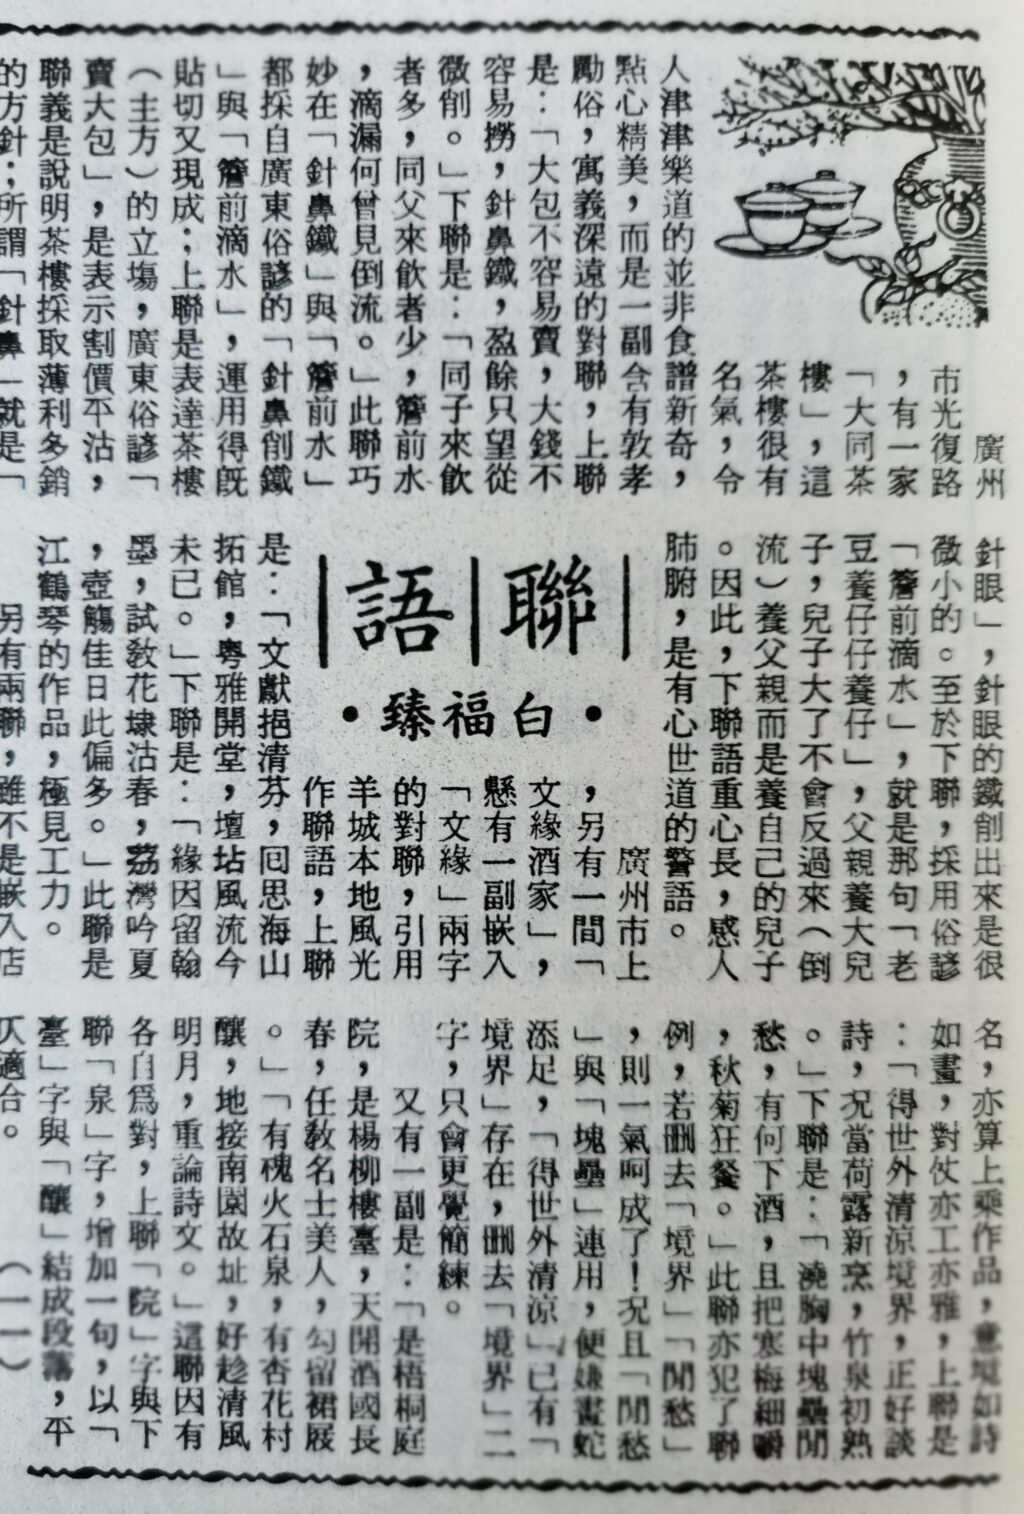 聯語
•白福臻•
廣州
市光復路
，有一家
「大同茶
樓」，這
茶樓很有
名氣，令
人津津樂道的並非食譜新奇，
點心精美，而是一副含有敦孝
勵俗，寓義深遠的對聯，上聯
是：「大包不容易賣，大錢不
容易撈，針鼻鐵，盈餘只望從
微削。」下聯是：「同子來飲
者多，同父來飲者少，簷前水
，滴漏何曾見倒流。」此聯巧
妙在「針鼻鐵」與「簷前水」
都採自廣東俗諺的「針鼻削鐵
」與「簷前滴水」，運用得既
貼切又現成；上聯是表達茶樓
（主方）的立塲，廣東俗諺「
賣大包」，是表示割價平沽，
聯義是說明茶樓採取薄利多銷
的方針；所謂「針鼻」就是「
針眼」，針眼的鐵削出來是很
微小的。至於下聯，採用俗諺
「簷前滴水」，就是那句「老
豆養仔仔養仔」，父親養大兒
子，兒子大了不會反過來（倒
流）養父親而是養自己的兒子
。因此，下聯語重心長，感人
肺腑，是有心世道的警語。
廣州市上
，另有一間「
文緣酒家」，
懸有一副嵌入
「文緣」兩字
的對聯，引用
羊城本地風光
作聯語，上聯
是：「文獻挹清芬，回思海山
拓館，粵雅開堂，壇坫風流今
未已。」下聯是：「緣因留翰
墨，試敎花埭沽春，荔灣吟夏
，壺觴佳日此偏多。」此聯是
江鶴琴的作品，極見工力。
另有兩聯，雖不是嵌入店
名，亦算上乘作品，意境如詩
如畫，對仗亦工亦雅，上聯是
：「得世外清涼境界，正好談
詩，况當荷露新烹，竹泉初熟
。」下聯是：「澆胸中塊壘閒
愁，有何下酒，且把寒梅細嚼
，秋菊狂餐。」此聯亦犯了聯
例，若刪去「境界」「閒愁」
，則一氣呵成了！况且「閒愁
」與「塊壘」連用，便嫌畫蛇
添足，「得世外清涼」已有「
境界」存在，刪去「境界」二
字，只會更覺簡練。
又有一副是：「是梧桐庭
院，是楊柳樓臺，天開酒國長
春，任敎名士美人，勾留裙屐
。」「有槐火石泉，有杏花村
釀，地接南園故址，好趁清風
明月，重論詩文。」這聯因有
各自爲對，上聯「院」字與下
聯「泉」字，增加一句，以「
臺」字與「釀」結成段落，平
仄適合。（一一）